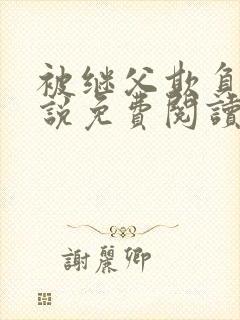 被继父欺负
說免費閱讀
謝麗卿